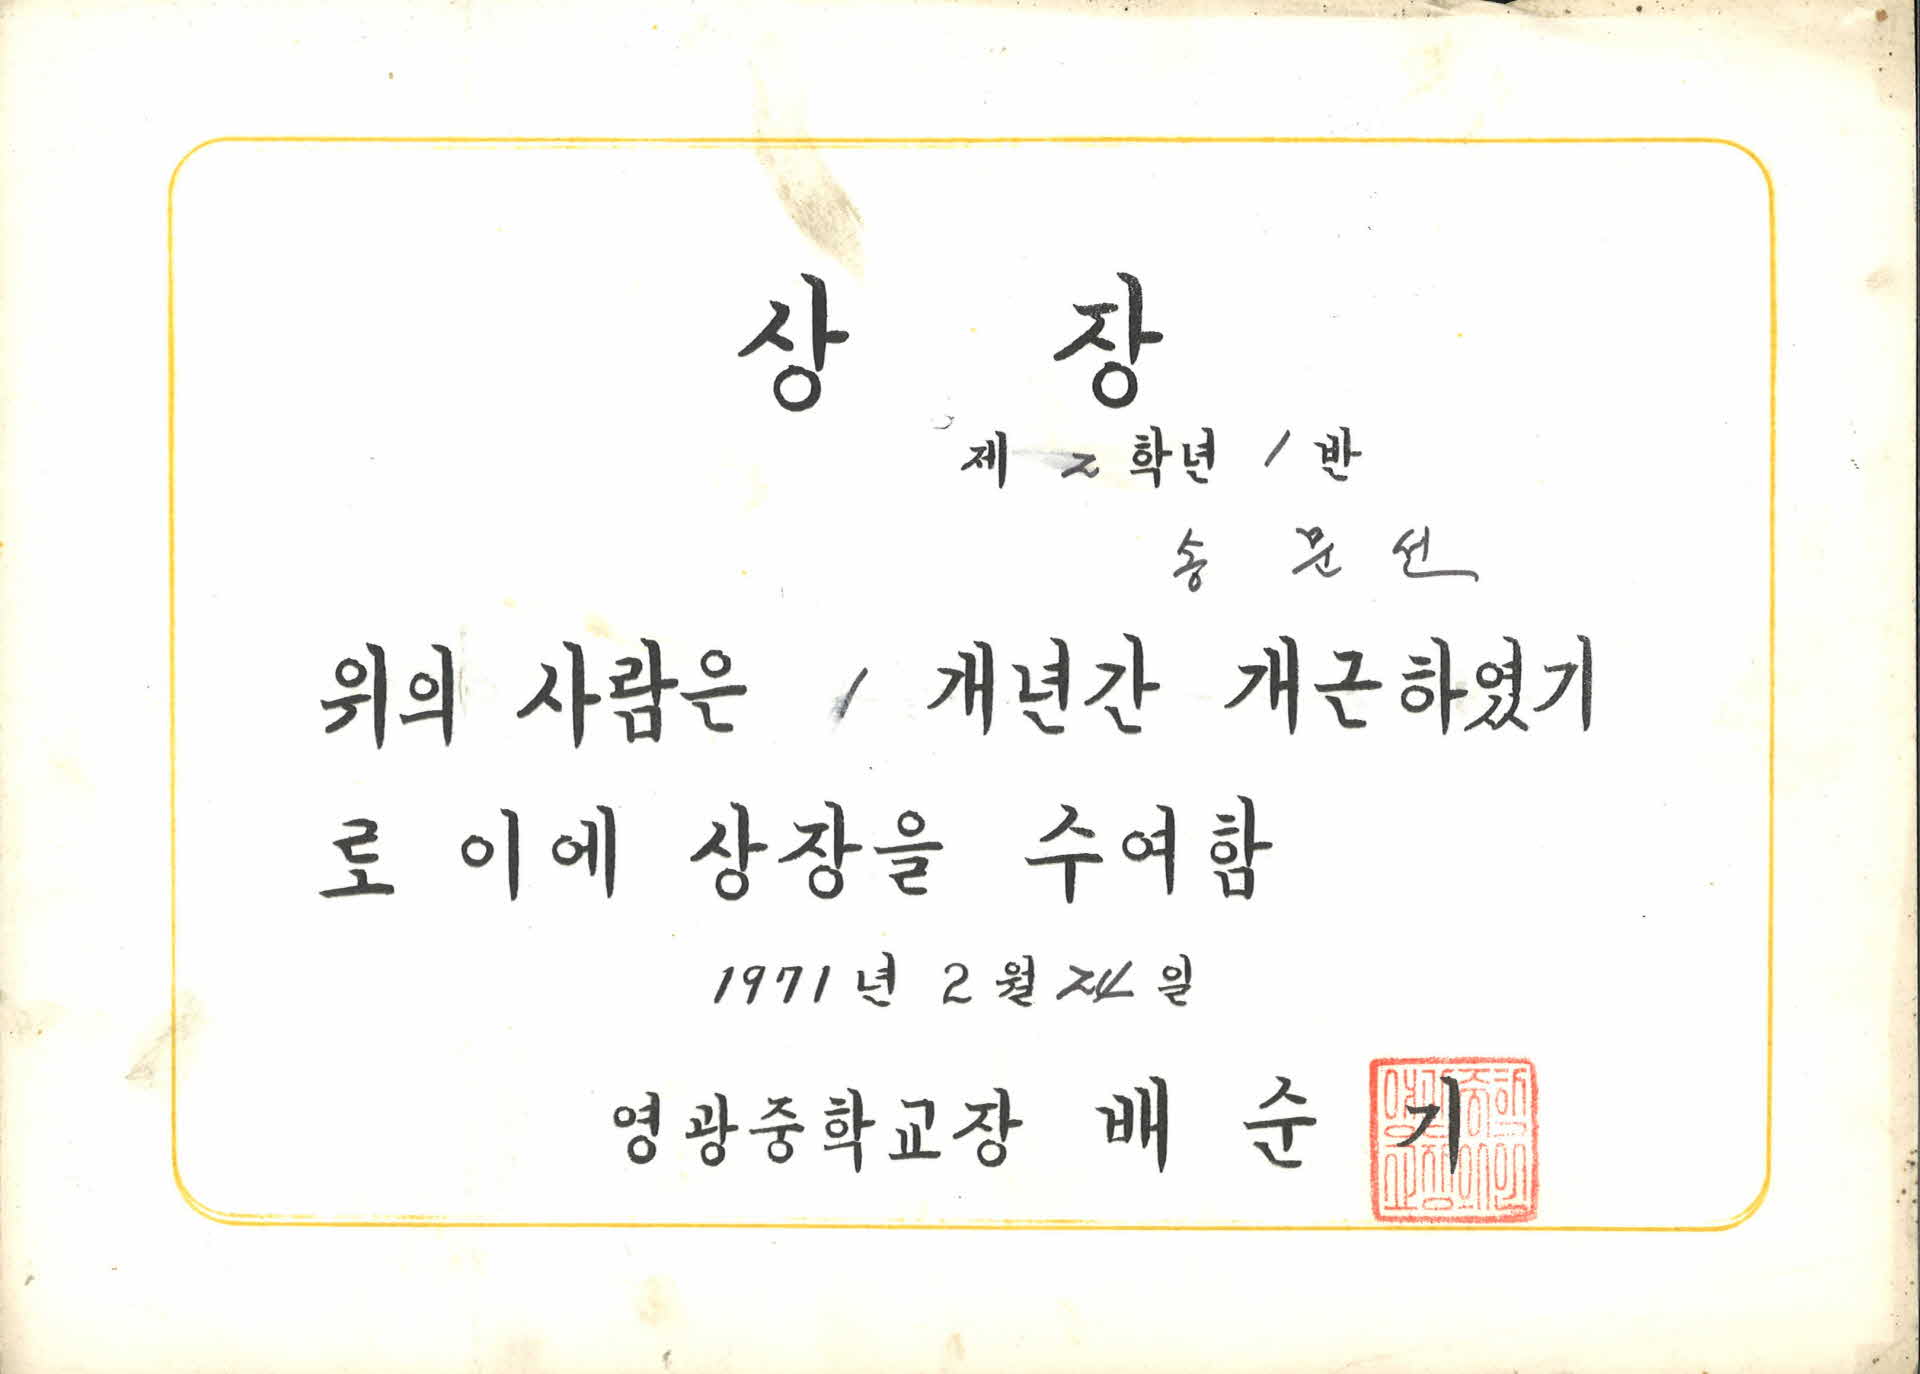 상 장
제 2 학년 1 반
송 문 선
위의 사람은 1 개년간 개근하였기
로 이에 상장을 수여함
1971년 2월 24일
영광중학교장 배 순 기
영광중학
교장의인